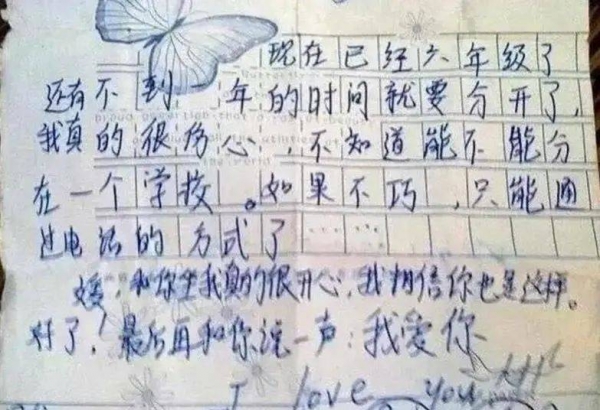 现在已经六年级了
还有不到 年的时间就要分开了,
我真的很伤心,不知道能不能分
在一个学校。如果不巧,只能通
过电话的方式了……
媛,和你坐我真的很开心,我相信你也是这样。
对了!最后再和你说一声:我爱你
I love you